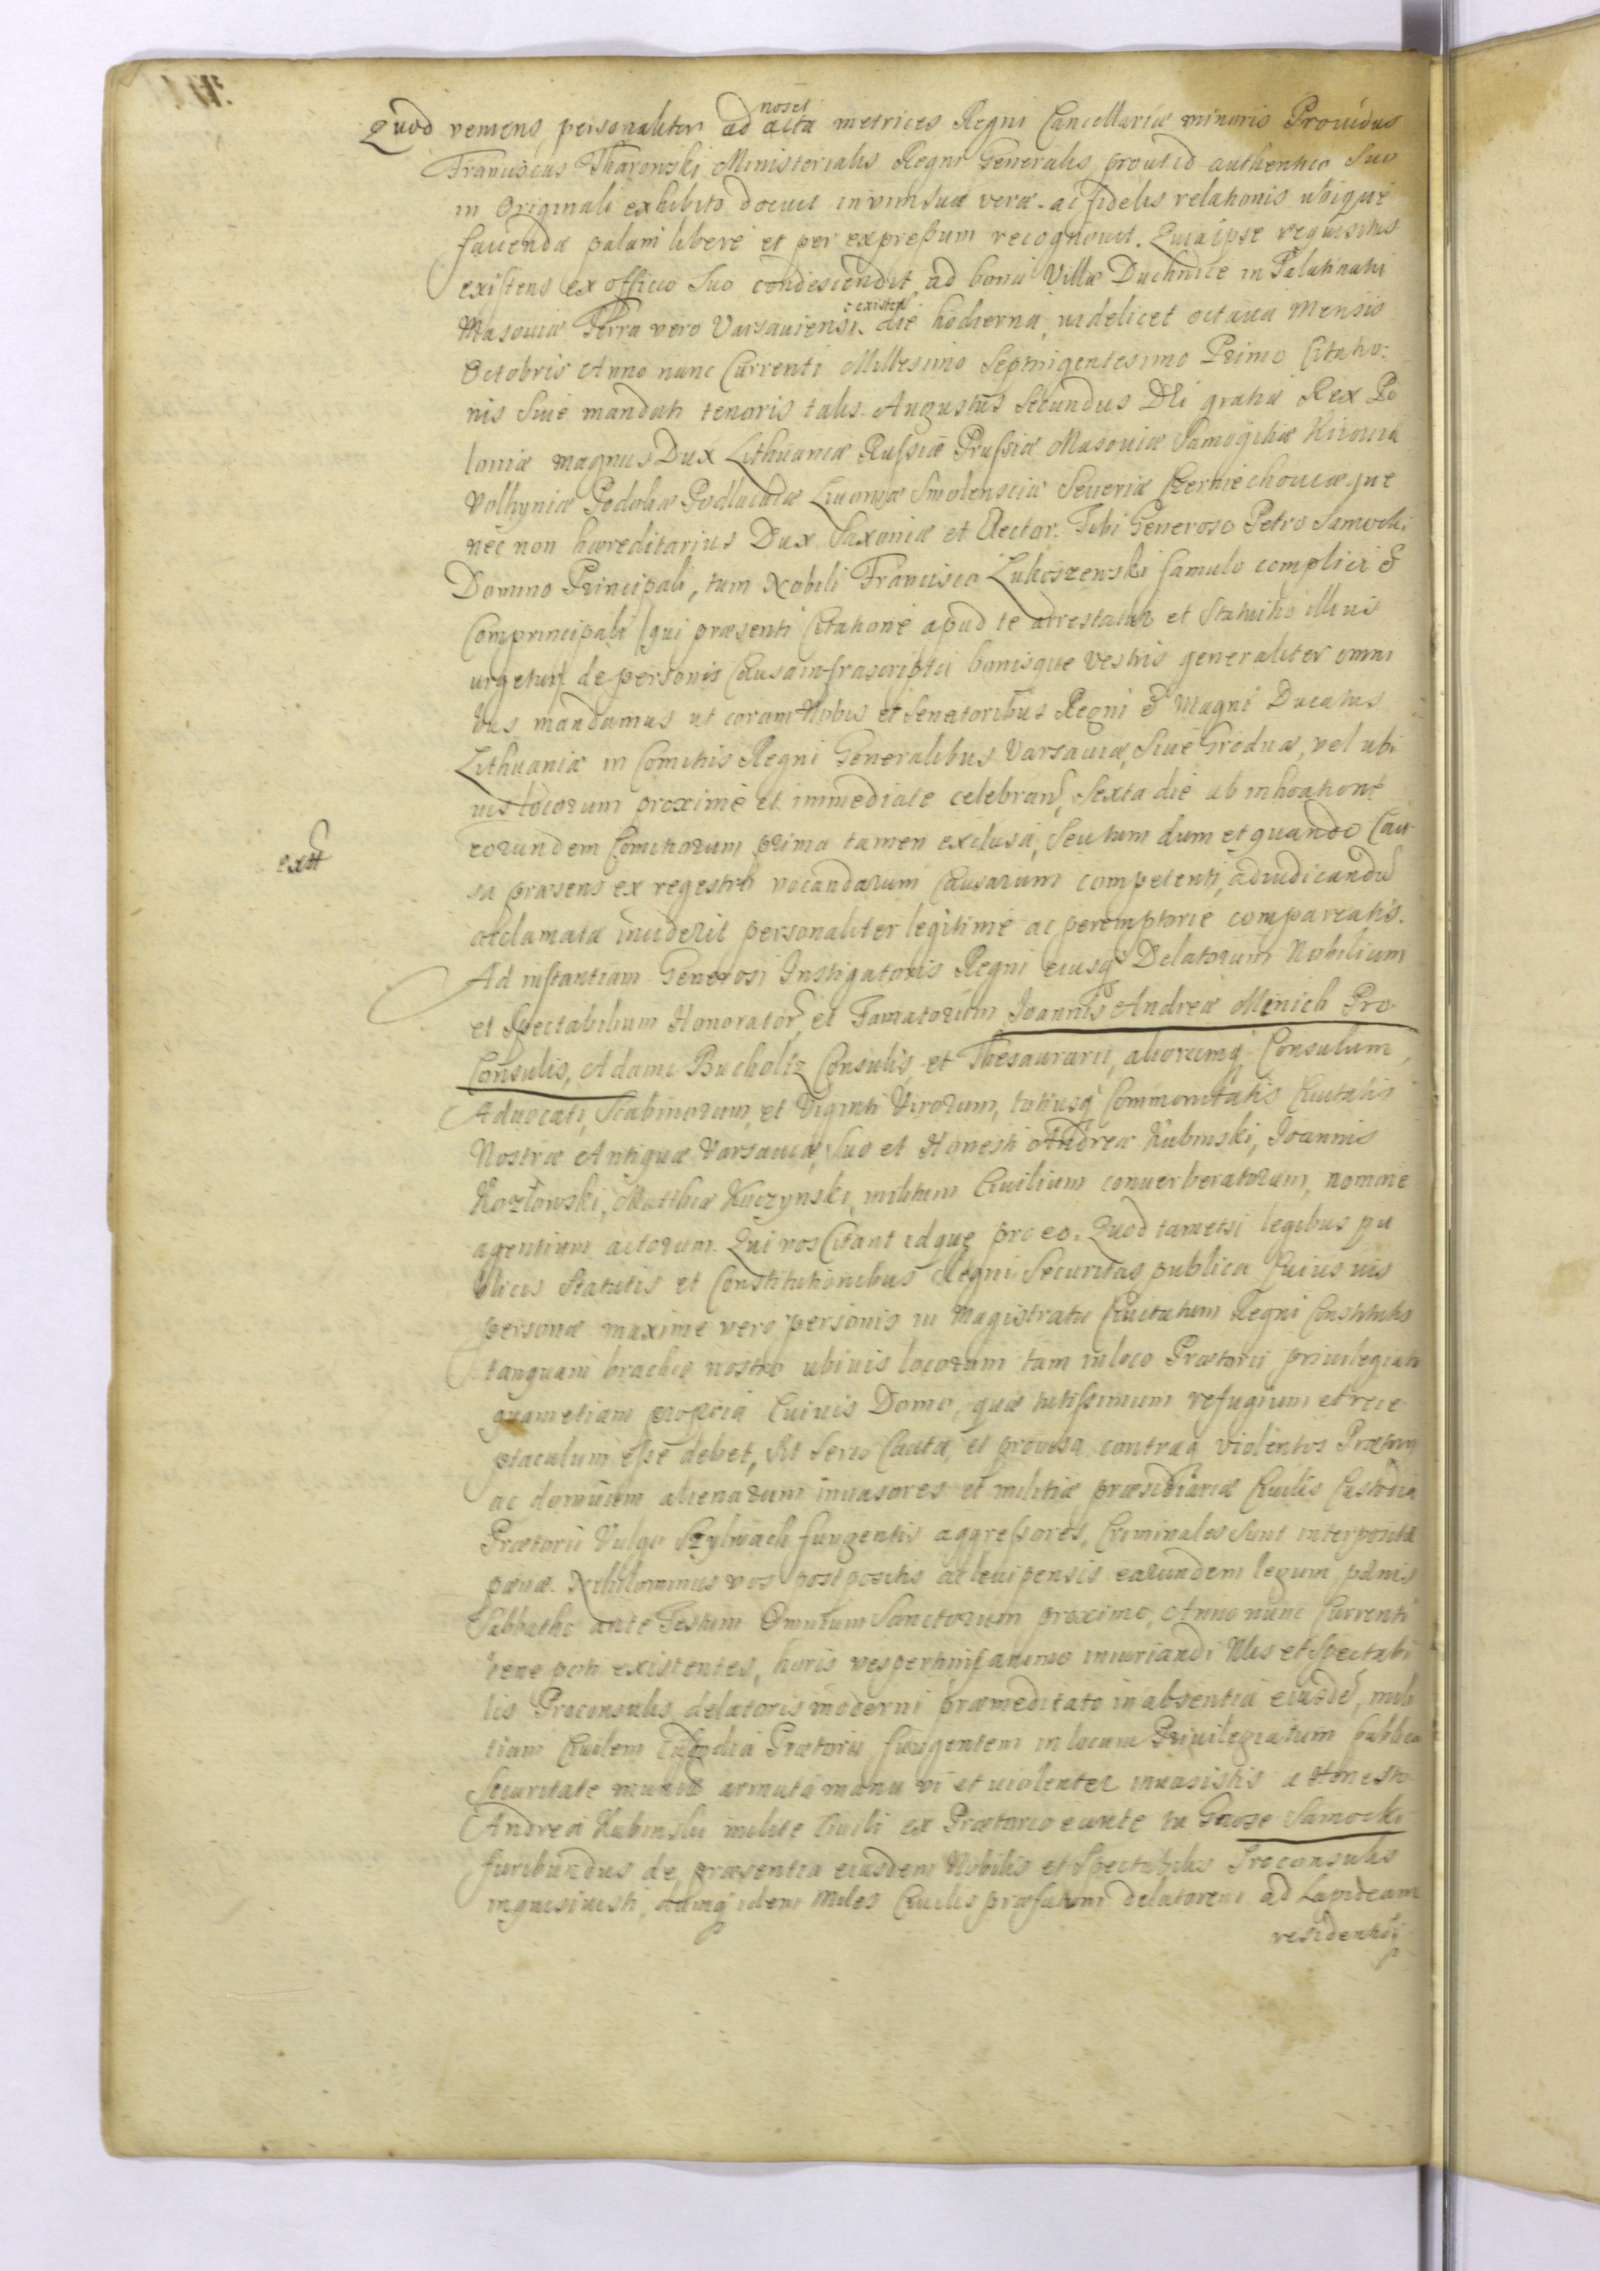 Quod veniens personaliter ad nost acta metrices Regni Cancellariæ minoris Prouidus
Franciscus Tharowski Ministerialis Regni Generalis, prout id authentico suo
in Originali exhibito docuit in vim suæ veræ ac fidelis relationis ubique
fauendæ palam libere et per expressum recognouit. Quia ipse requisitus
existens ex officio suo condescendit ad bona Villæ Duchnice in Palatinatu
Masouiæ Terra vero Varsauiensi existen die hodierna, videlicet octaua Mensis
Octobris Anno nunc Currenti Millesimo Septingentesimo Primo Citatio:
nis siue mandati tenoris talis. Augustus Secundus Dei gratia Rex Po
loniæ magnus Dux Lithuaniæ Russiæ Prussiæ Masouiæ Samogitiæ Kiiouiæ
Volhyniæ Podoliæ Podlachiæ Liuoniæ Smolensciæ Seueriæ Czerniechouiæque
nec non hæreditarius Dux Saxoniæ et Elector. Tibi Generoso Petro Samocki
Domino Principali, tum Nobili Francisco Lukoszewski famulo complici &
Comprincipali (qui præsenti Citatione apud te arrestatur et Statuitio illius
urgetur) de personis Causa infrascripta bonisque vestris generaliter omni
bus mandamus ut coram Nobis et Senatoribus Regni & Magni Ducatus
Lithuaniæ in Comitiis Regni Generalibus Varsauiæ, siue Grodnæ, vel ubi
uis locorum proxime et immediate celebran, sexta die ab inhoatione
eorundem Comitiorum prima tamen exclusa, seu tum dum et quando Cau
extt
sa præsens ex regestro vocandarum Causarum competenti, adiudicandu
acclamata inciderit personaliter legitime ac peremptorie compareatis.
Ad instantiam Generosi Instigatoris Regni eiusq Delatorum Nobilium
et Spectabilium Honorator, et Famatorum Ioannis Andreæ Minich Pro
Consulis, Adami Bucholtz Consulis, et Thesaurarii, aliorumq Consulum,
Aduocati, Scabinorum, et Viginti Virorum, totiusq Communitatis Ciuitatis
Nostræ Antiquæ Varsauiæ, suo et Honesti Andreæ Kubinski, Ioannis
Kozłowski, Matthiæ Kuczynski, militum Ciuilium conuerberatorum, nomine
agentium actorum. Qui vos Citant idque pro eo. Quod tametsi legibus pu
blicis Statutis et Constitutionibus Regni Securitas publica Cuius uis
personæ maxime vero personis in Magistratu Ciuitatum Regni Constitutis
tanquam brachio nostro ubiuis locorum tam in loco Prætorii priuilegiato
quam etiam propria Cuiuis Domo, quæ tutissimum refugium et rece
ptaculum esse debet, sit serio Cauta, et prouisa contraq violentos Prætorij
ac domuum alienarum inuasores et militiæ præsidiariæ Ciuilis Custodia
Prætorii Vulgo Szylwach fungentis aggressores, Criminales sunt interposita
pœnæ. Nihilominus vos postpositis ac leuipensis earundem legum pœnis
Sabbatho ante Festum Omnium Sanctorum proximo, Anno nunc Currenti
bene poti existentes, horis vespertinis animo iniuriandi Nlis et Spectabi
lis Proconsulis delatoris moderni præmeditato in absentia eiusde, mili
tiam Ciuilem Custodia Prætorii fungentem in locum Priuilegiatum publica
securitate munit armata manu vi et violenter inuasistis a Honesto
Andrea Kubinski milite Ciuili ex Prætorio eunte tu Gnose Samocki
furibundus de præsentia eiusdem Nobilis et Spectabilis Proconsulis
inquisiuisti, idem Miles Ciuilis præfatum delatorem ad Lapideam
residentiæ